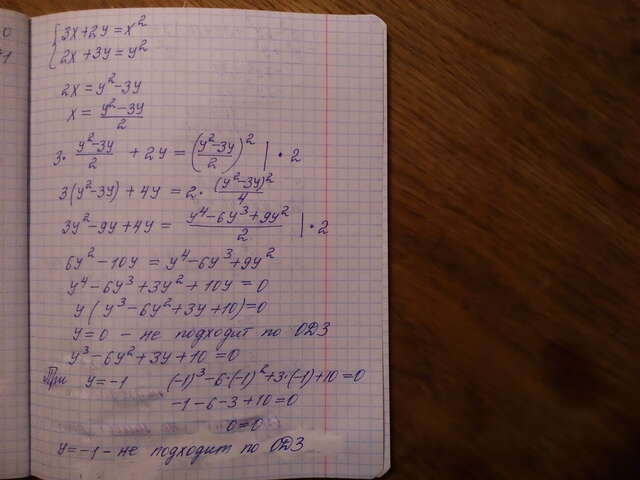 3x+2y=x²
2x+3y=y²
2x=y²-3y
x= (y²-3y)/2
3· (y²-3y)/2 + 2y = ((y²-3y)/2)² | · 2
3(y²-3y)+4y = 2· (y²-3y)²/4
3y²-9y+4y = (y⁴-6y³+9y²)/2 | · 2
6y²-10y = y⁴-6y³+9y²
y⁴-6y³+3y²+10y=0
y(y³-6y²+3y+10)=0
y=0 - не подходит по ОДЗ
y³-6y²+3y+10=0
При y=-1 (-1)³-6·(-1)²+3·(-1)+10=0
-1-6-3+10=0
0=0
y=-1 - не подходит по ОДЗ